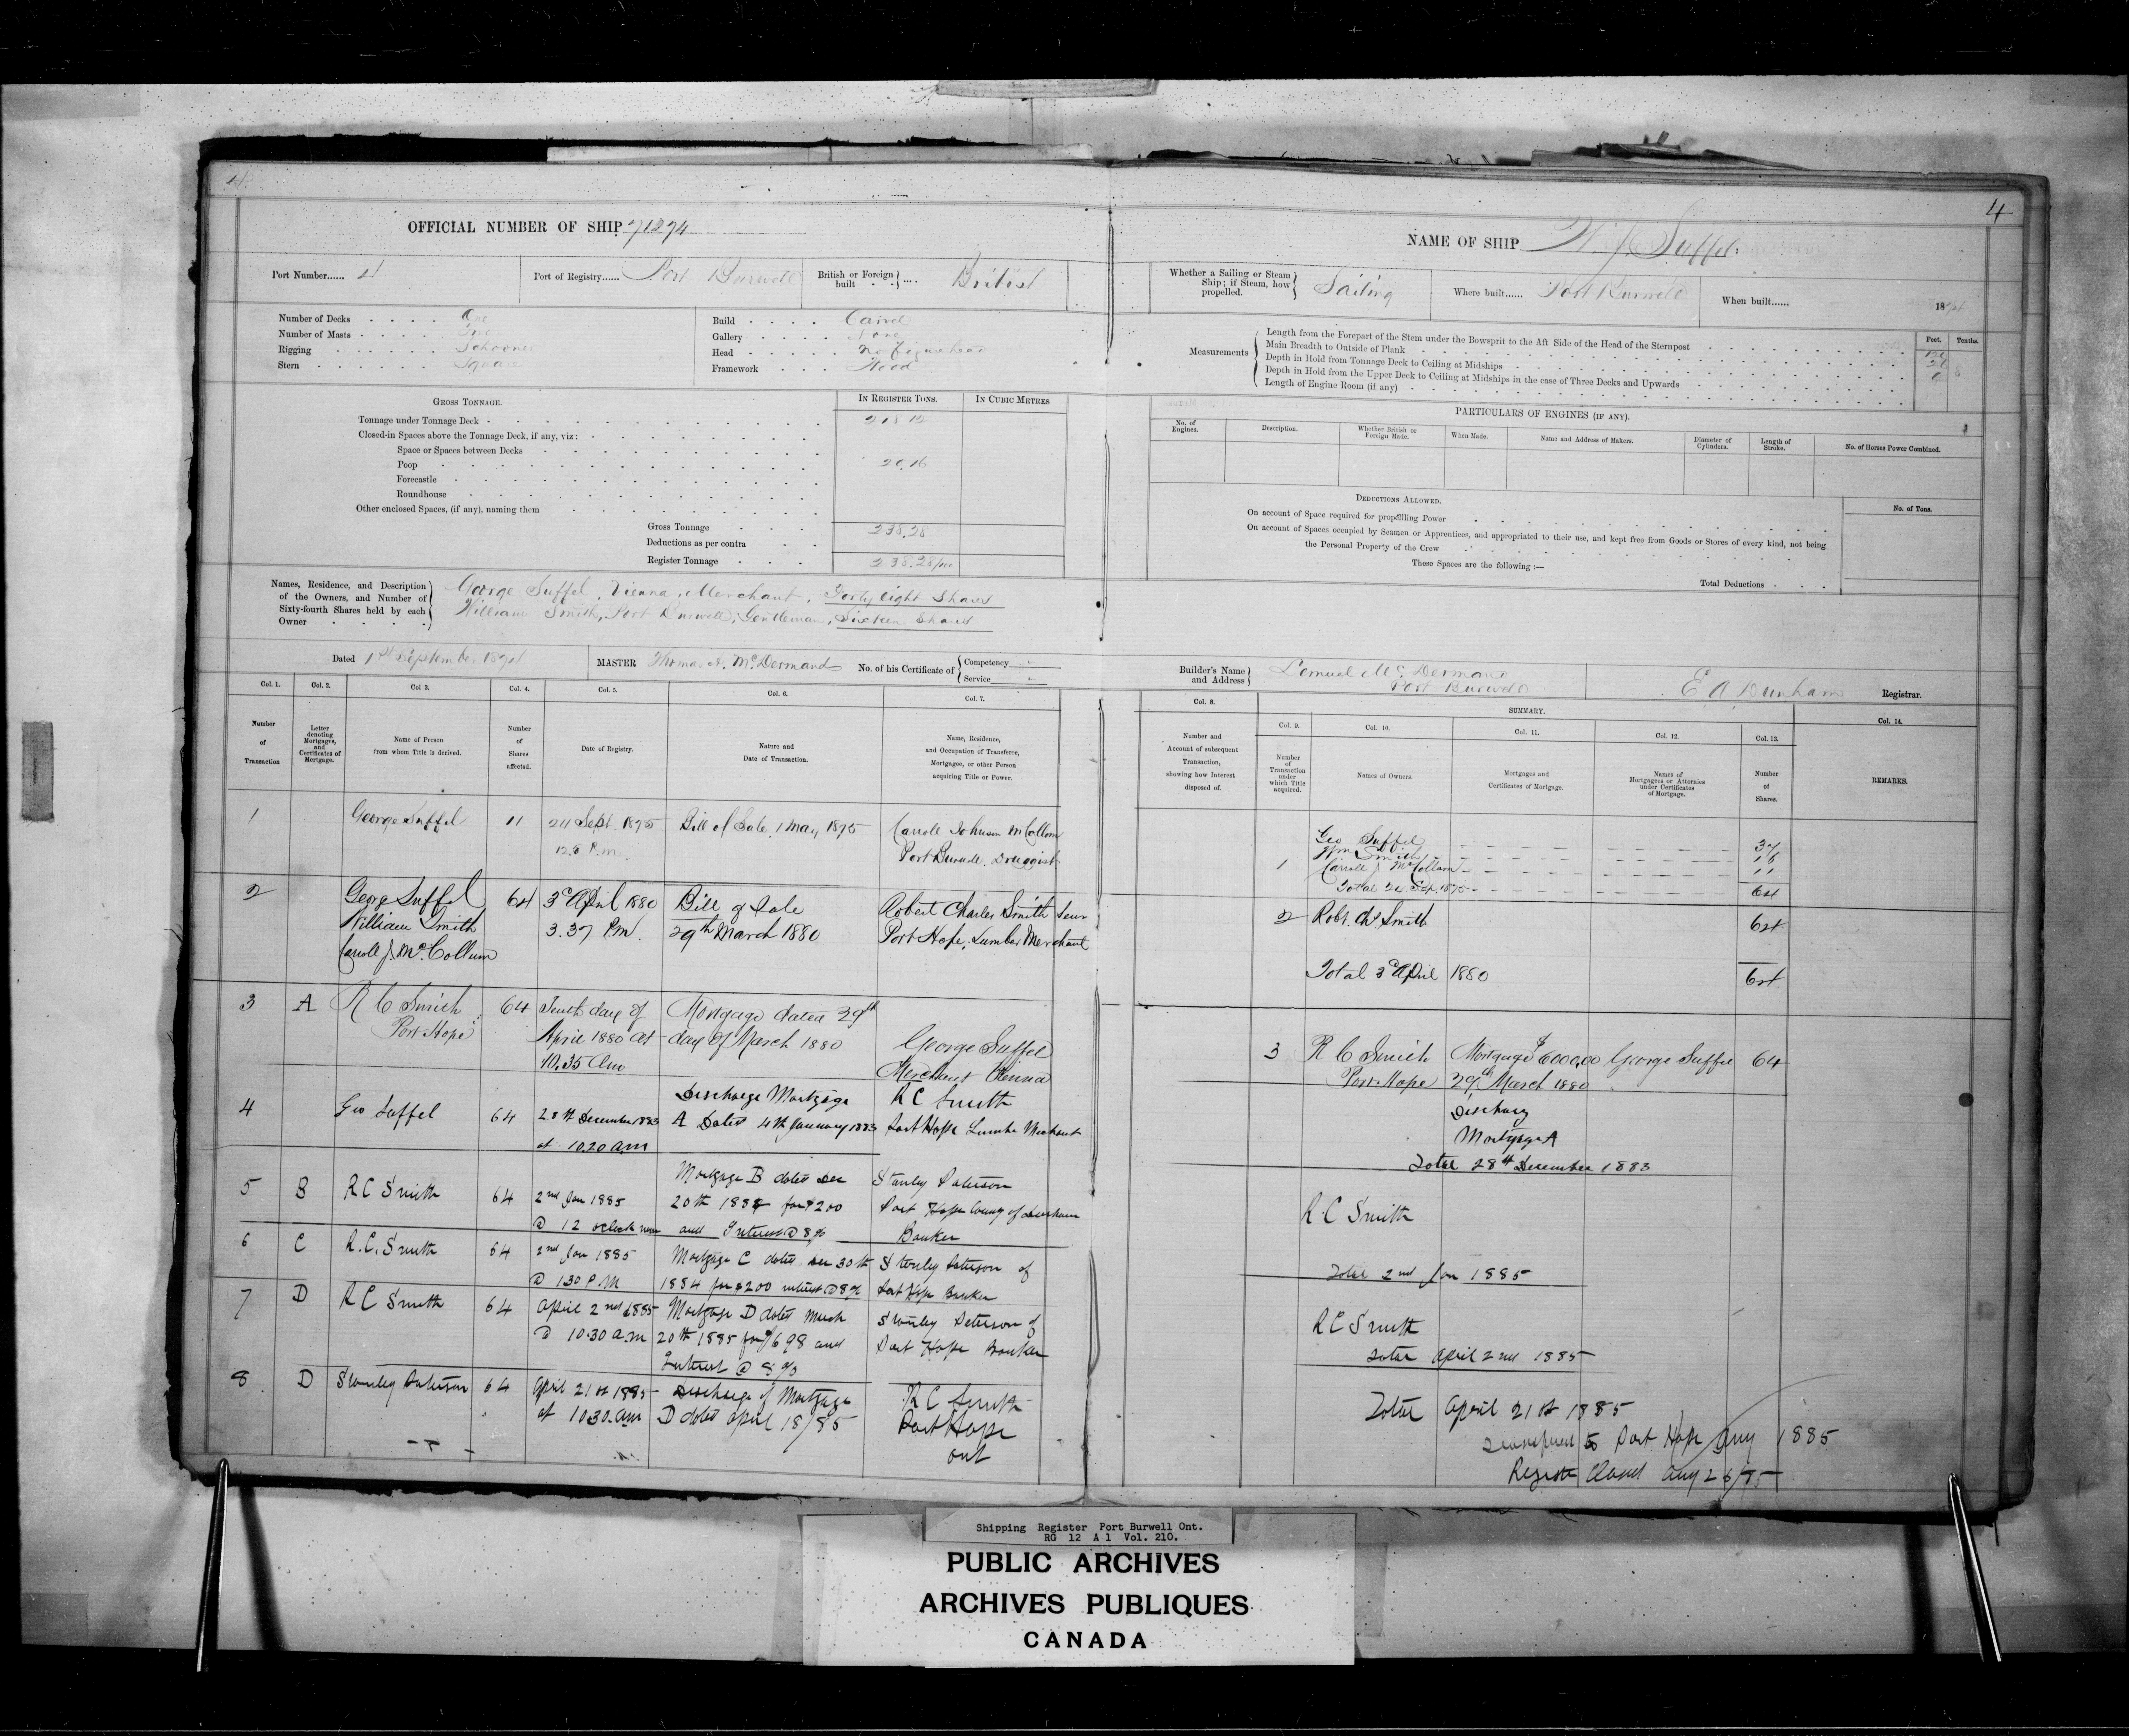 4
OFFICIAL NUMBER OF SHIP 71274
Port Number...... 4
Port of Registry...... Port Burwell
British or Foreign built .... British
Number of Decks One
Number of Masts Two
Rigging Schooner
Stern Square
Build Carvel
Gallery None
Head No Figurehead
Framework Wood
GROSS TONNAGE.
IN REGISTER TONS.
IN CUBIC METRES
Tonnage under Tonnage Deck 218.12
Closed-in Spaces above the Tonnage Deck, if any, viz:
Space or Spaces between Decks
Poop 20.16
Forecastle
Roundhouse
Other enclosed Spaces, (if any), naming them
Gross Tonnage 238.28
Deductions as per contra
Register Tonnage 238.28/100
Names, Residence, and Description of the Owners, and Number of Sixty-fourth Shares held by each Owner
George Suffel, Vienna, Merchant, Forty eight Shares
William Smith, Port Burwell, Gentleman, Sixteen Shares
Dated 1st September 1874
MASTER Thomas A. McDermand
No. of his Certificate of Competency Service
Col. 1. Col. 2. Col 3. Col. 4. Col. 5. Col. 6. Col. 7.
Number of Transaction
Letter denoting Mortgages, and Certificates of Mortgage.
Name of Person from whom Title is derived.
Number of Shares affected.
Date of Registry.
Nature and Date of Transaction.
Name, Residence, and Occupation of Transferee, Mortgagee, or other Person acquiring Title or Power.
1 George Suffel 11 24 Sept. 1875 Bill of Sale 1 May 1875 Carroll Johnson McCollom
P.m. Port Burwell. Druggist
2 George Suffel 64 3d April 1880 Bill of Sale Robert Charles Smith
William Smith 3.37 P.m. 29th March 1880 Port Hope, Lumber Merchant
Carroll J. McCollum
3 A R C Smith 64 Tenth day of Mortgage dated 29th
Port Hope April 1880 at day of March 1880 George Suffel
10.35 Am Merchant Vienna
4 Geo Suffel 64 28th December 1883 Discharge Mortgage R C Smith
A Dated 4th January 1883 Port Hope Lumber Merchant
at 10.20 a.m
5 B R C Smith 64 2nd Jan 1885 Mortgage B dated Dec Stanley Paterson
20th 1884 for $200 Port Hope County of Durham
@ 12 oclock noon and Interest @ 8% Banker
6 C R.C. Smith 64 2nd Jan 1885 Mortgage C dated Dec 30th Stanley Paterson of
@ 1.30 P.M 1884 for $200 interest @ 8% Port Hope Banker
7 D R C Smith 64 April 2nd 1885 Mortgage D dated March Stanley Paterson of
@ 10.30 a.m 20th 1885 for $698 and Port Hope Banker
Interest @ 8%
8 D Stanley Paterson 64 April 21st 1885 Discharge of Mortgage R C Smith
at 10.30 am D dated April 18/85 Port Hope
ont
4
NAME OF SHIP W. Y. Suffel
Whether a Sailing or Steam Ship; if Steam, how propelled. Sailing
Where built...... Port Burwell
When built...... 1874
Measurements
Feet. Tenths.
Length from the Forepart of the Stem under the Bowsprit to the Aft Side of the Head of the Sternpost
Main Breadth to Outside of Plank
Depth in Hold from Tonnage Deck to Ceiling at Midships
Depth in Hold from the Upper Deck to Ceiling at Midships in the case of Three Decks and Upwards
Length of Engine Room (if any)
PARTICULARS OF ENGINES (IF ANY).
No. of Engines.
Description.
Whether British or Foreign Made.
When Made.
Name and Address of Makers.
Diameter of Cylinders.
Length of Stroke.
No. of Horses Power Combined.
DEDUCTIONS ALLOWED.
No. of Tons.
On account of Space required for propelling Power
On account of Spaces occupied by Seamen or Apprentices, and appropriated to their use, and kept free from Goods or Stores of every kind, not being
the Personal Property of the Crew
These Spaces are the following :—
Total Deductions
Builder's Name and Address Lemuel McDermand
Port Burwell
E A Dunham Registrar.
Col. 8. SUMMARY. Col. 14.
Col. 9. Col. 10. Col. 11. Col. 12. Col. 13.
Number and Account of subsequent Transaction, showing how Interest disposed of.
Number of Transaction under which Title acquired.
Names of Owners.
Mortgages and Certificates of Mortgage.
Names of Mortgagees or Attornies under Certificates of Mortgage.
Number of Shares.
REMARKS.
Geo Suffel 37
Wm Smith 16
1 Carroll J McCollom 11
Total 24 Sep. 1875 64
2 Robt. Chs Smith 64
Total 3d April 1880 64
3 R C Smith Mortgage $6000,00 George Suffel 64
Port Hope 29th March 1880
Discharg
Mortgage A
Total 28th December 1883
R C Smith
Total 2nd Jan 1885
R C Smith
Total April 2nd 1885
Total April 21st 1885
Transfered to Port Hope Aug 1885
Register Closed Aug 26/85
Shipping Register Port Burwell Ont.
RG 12 A 1 Vol. 210.
PUBLIC ARCHIVES
ARCHIVES PUBLIQUES
CANADA